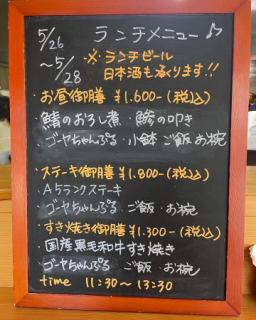 5/26 ランチメニュー♪
～5/28 ※ランチビール
日本酒も承ります!!
・お昼御膳 ¥1.600-(税込)
・鯖のおろし煮・鯵の叩き
・ゴーヤちゃんぷる・小鉢 ご飯 お椀
・ステーキ御膳 ¥1.800-(税込)
・A5ランクステーキ
・ゴーヤちゃんぷる ・ご飯・お椀
・すき焼き御膳 ¥1.300-(税込)
・国産黒毛和牛すき焼き
・ゴーヤちゃんぷる ご飯・お椀
time 11:30～13:30